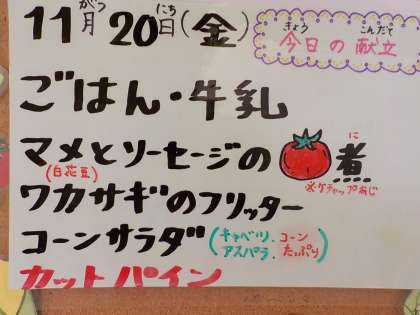 11月20日(金)
がつ にち
きょう こんだて
今日の献立
ごはん・牛乳
マメとソーセージの煮
に
(白花豆)
※ケチャップあじ
ワカサギのフリッター
コーンサラダ(キャベツ、コーン
アスパラ、たっぷり)
カットパイン